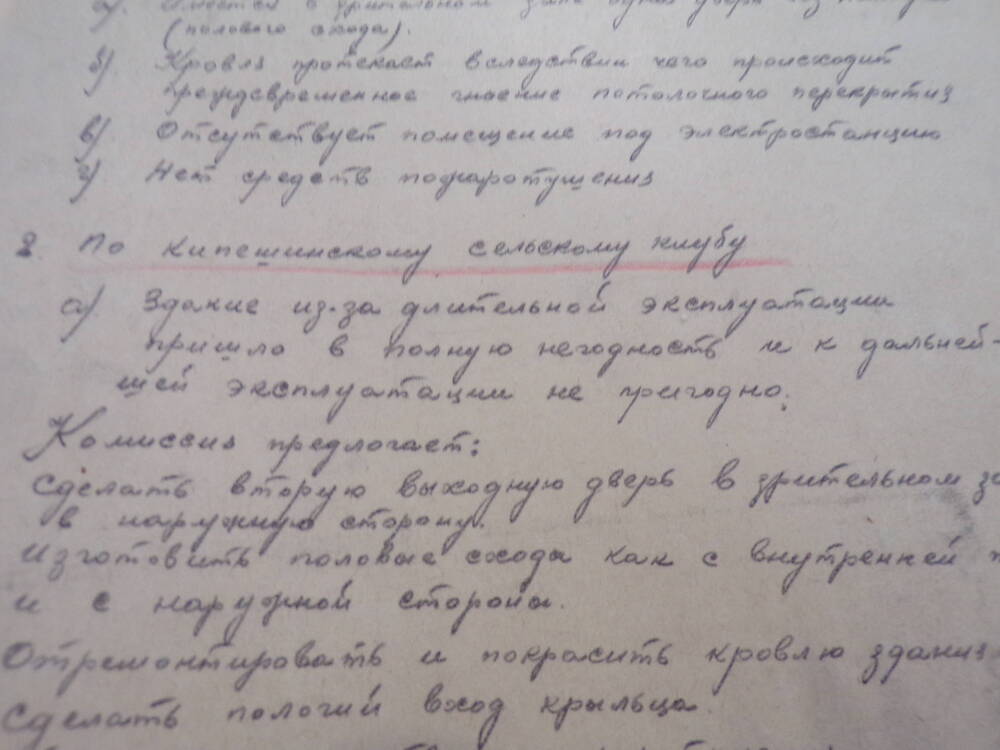 а). Имеется в зрительном зале одна дверь из
(полового схода).
б). Кровля протекает вследствии чего происходит
преждевременное гниение потолочного перекрытия
в). Отсутствует помещение под электростанцию
г) Нет средств пожаротушения
2. По Кипешинскому сельскому клубу
а) Здание из-за длительной эксплуатации
пришло в полную негодность и к дальней-
шей эксплуатации не пригодно.
Комиссия предлогает:
Сделать вторую выходную дверь в зрительном
в наружную сторону.
Изготовить половые схода как с внутренней
и с наружной стороны.
Отремонтировать и покрасить кровлю здания
Сделать пологий вход крыльца.